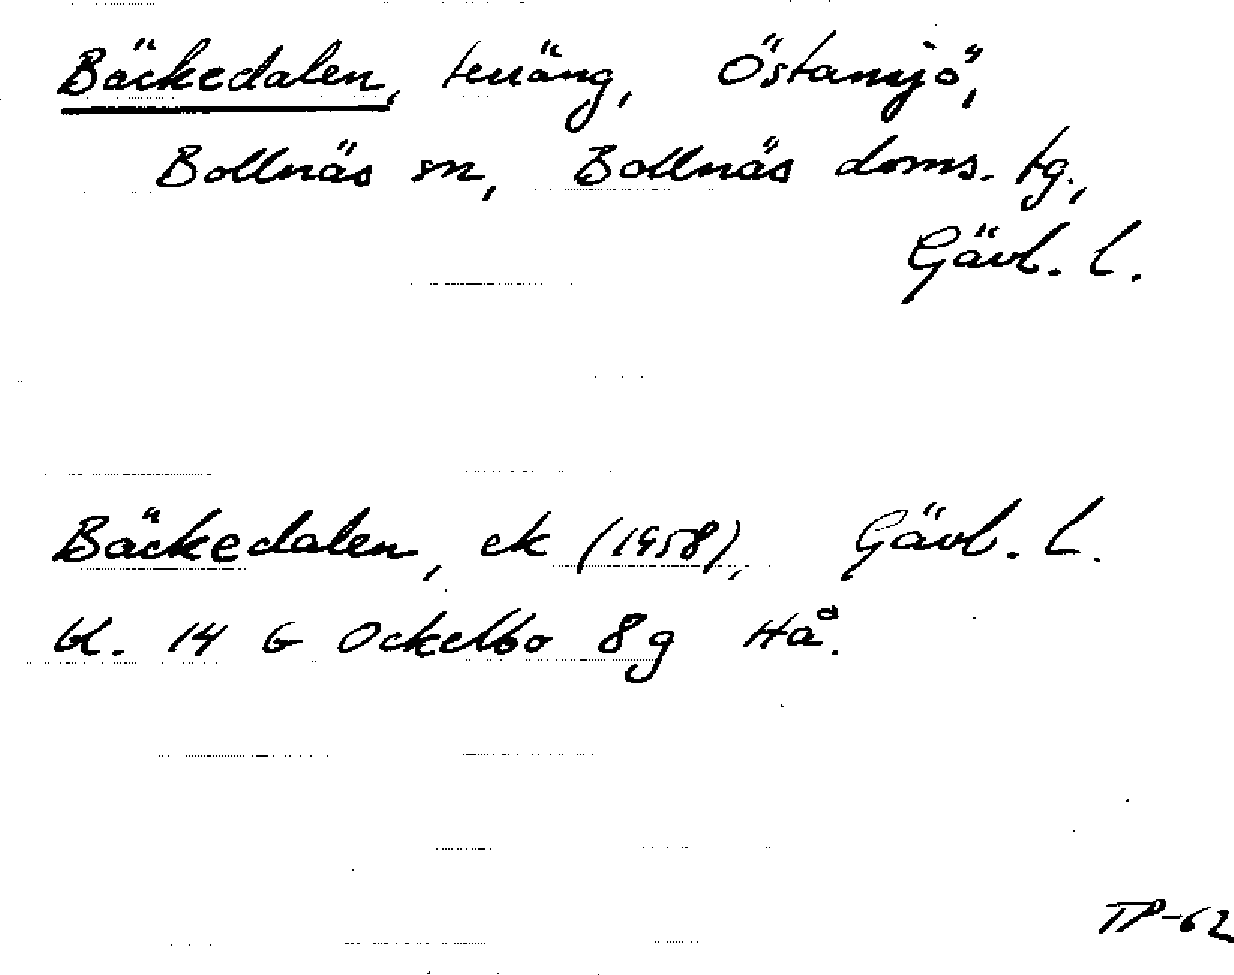 Bäckedalen, terräng, Östansjö,
Bollnäs sn, Bollnäs doms. tg.,
Gävl. l.
Bäckedalen, ek (1958), Gävl. L.
bl. 14 G Ockelbo 8g Hå.
TP-62